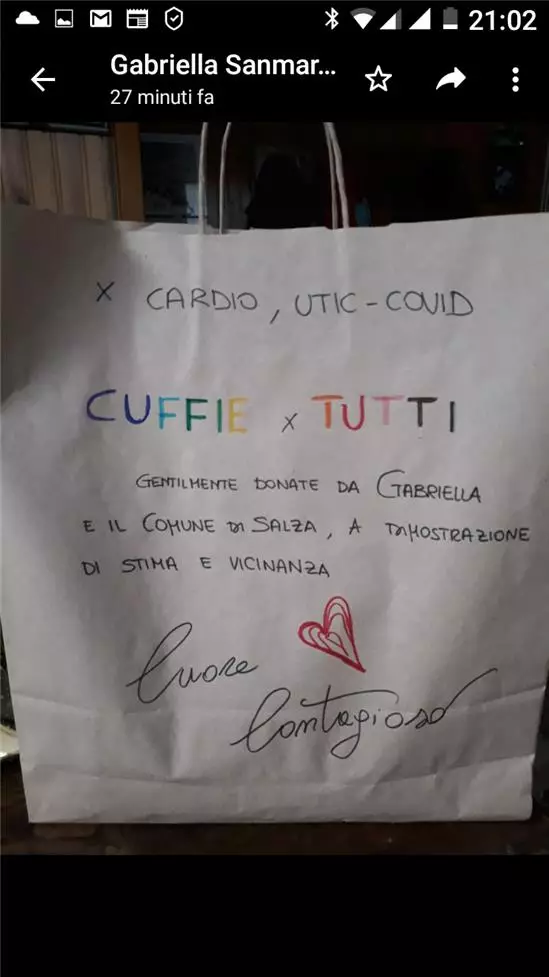 21:02
Gabriella Sanmar...
27 minuti fa
X CARDIO, UTIC-COVID
CUFFIE x TUTTI
GENTILMENTE DONATE DA GABRIELLA
E IL COMUNE DI SALZA, A DIMOSTRAZIONE
DI STIMA E VICINANZA
Cuore
Contagioso